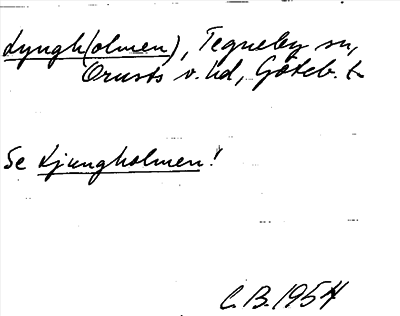 Lyngh(olmen), Tegneby sn,
Orusts v. hd, Göteb. l.
Se Ljungholmen!
C.B. 1954